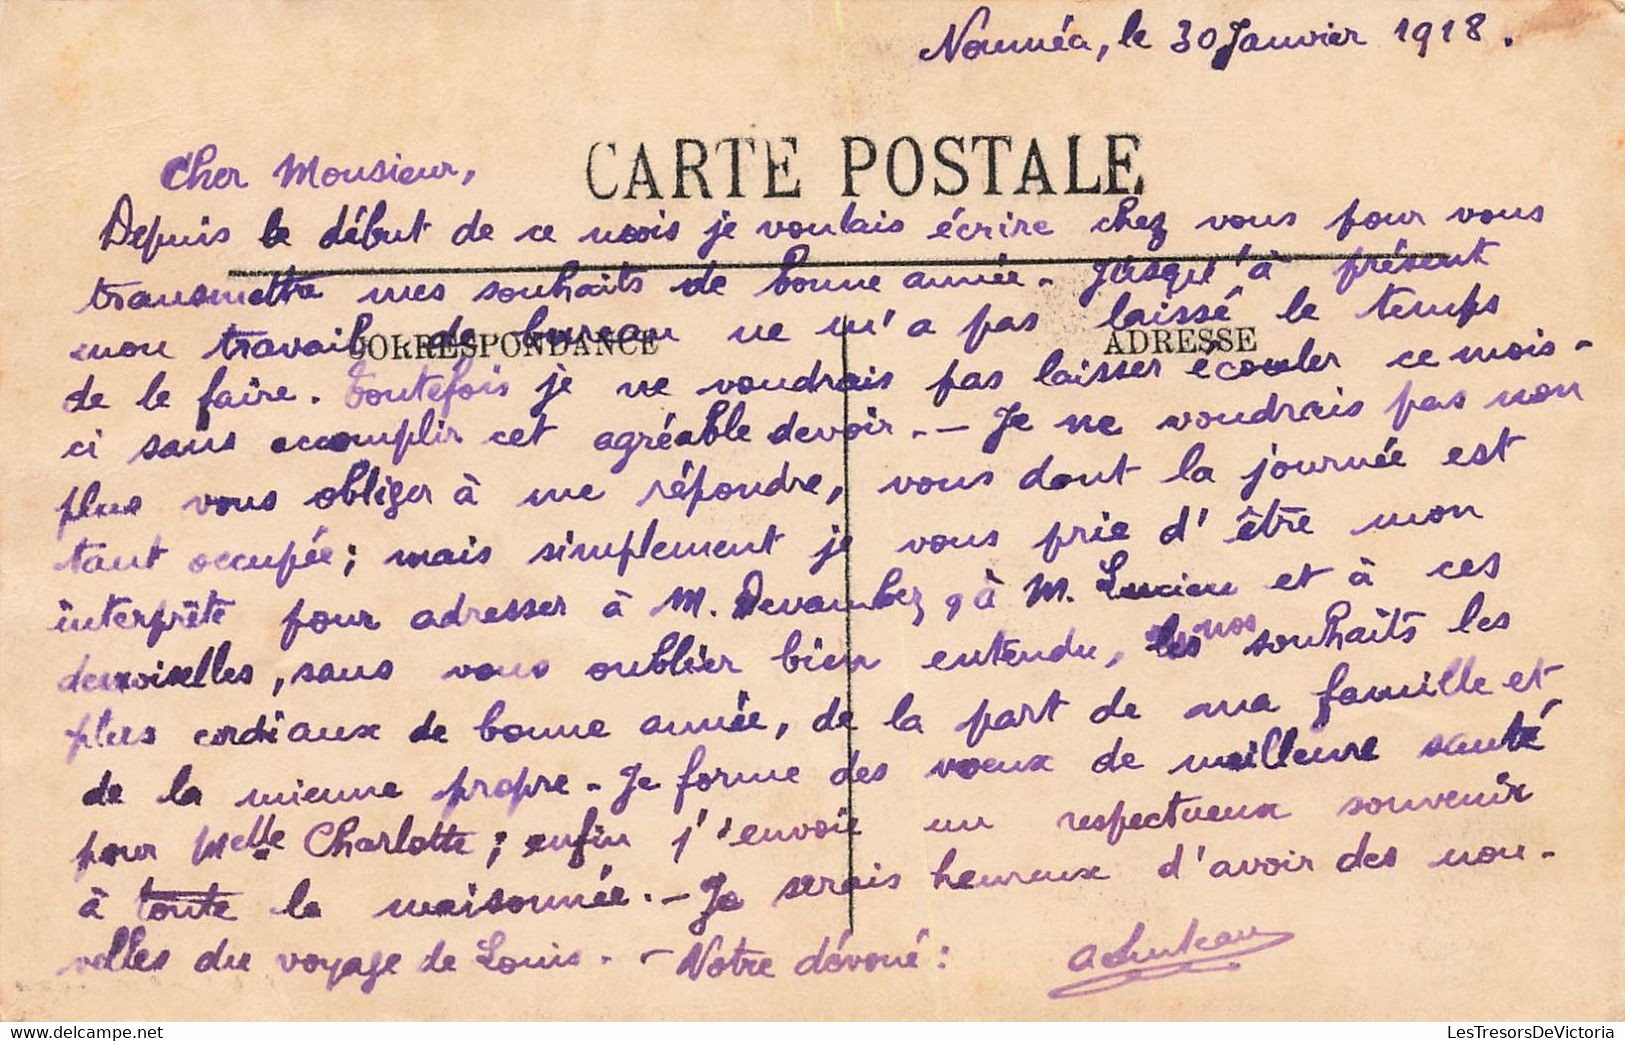 Nouméa, le 30 Janvier 1918.
CARTE POSTALE
Cher Monsieur,
Depuis le début de ce mois je voulais écrire chez vous pour vous
transmettre mes souhaits de bonne année. Jusqu'à présent
mon travail de bureau ne m'a pas laissé le temps
CORRESPONDANCE
ADRESSE
de le faire. Toutefois je ne voudrais pas laisser écouler ce mois-
ci sans accomplir cet agréable devoir. — Je ne voudrais pas non
plus vous obliger à me répondre, vous dont la journée est
tant occupée; mais simplement je vous prie d'être mon
interprête pour adresser à M. Devambez, à M. Lucien et à ces
demoiselles, sans vous oublier bien entendu, nos souhaits les
plus cordiaux de bonne année, de la part de ma famille et
de la mienne propre. Je forme des voeux de meilleure santé
pour Melle Charlotte; enfin j'envoie un respectueux souvenir
à toute la maisonnée. — Je serais heureux d'avoir des nou-
velles du voyage de Louis. — Votre dévoué:
LesTresorsDeVictoria
www.delcampe.net